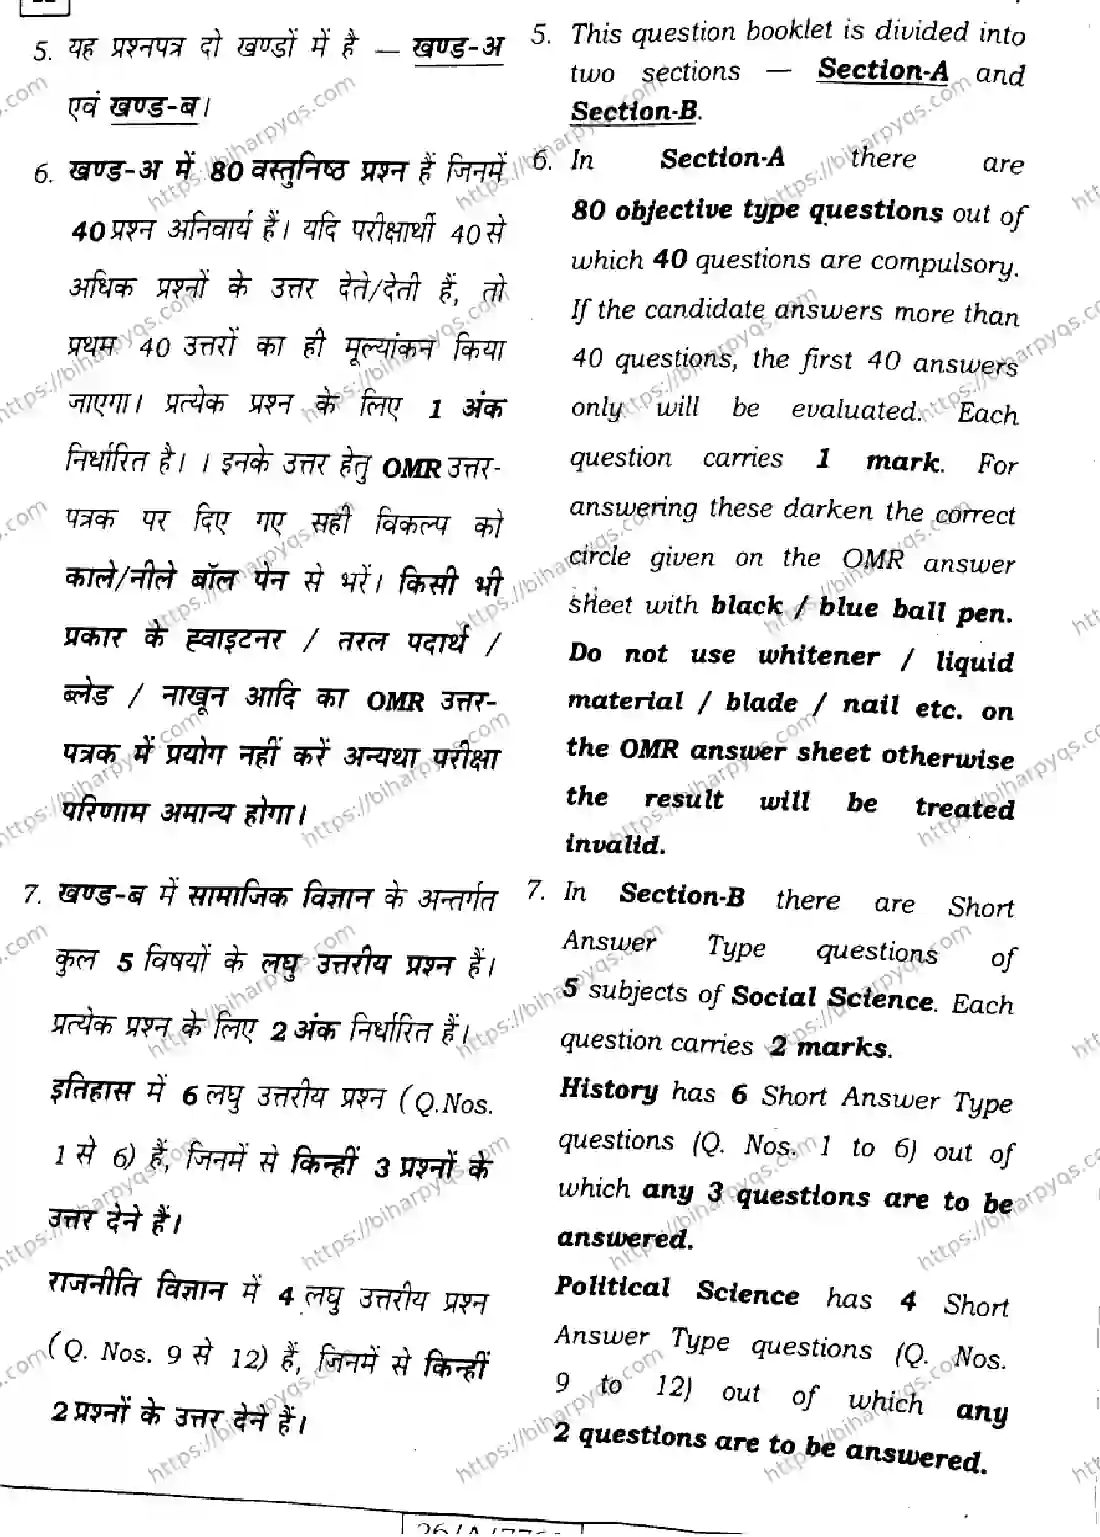 5. यह प्रश्नपत्र दो खण्डों में है — खण्ड-अ
एवं खण्ड-ब।
6. खण्ड-अ में 80 वस्तुनिष्ठ प्रश्न हैं जिनमें
40 प्रश्न अनिवार्य हैं। यदि परीक्षार्थी 40 से
अधिक प्रश्नों के उत्तर देते/देती हैं, तो
प्रथम 40 उत्तरों का ही मूल्यांकन किया
जाएगा। प्रत्येक प्रश्न के लिए 1 अंक
निर्धारित है। । इनके उत्तर हेतु OMR उत्तर-
पत्रक पर दिए गए सही विकल्प को
काले/नीले बॉल पेन से भरें। किसी भी
प्रकार के ह्वाइटनर / तरल पदार्थ /
ब्लेड / नाखून आदि का OMR उत्तर-
पत्रक में प्रयोग नहीं करें अन्यथा परीक्षा
परिणाम अमान्य होगा।
7. खण्ड-ब में सामाजिक विज्ञान के अन्तर्गत
कुल 5 विषयों के लघु उत्तरीय प्रश्न हैं।
प्रत्येक प्रश्न के लिए 2 अंक निर्धारित हैं।
इतिहास में 6 लघु उत्तरीय प्रश्न (Q.Nos.
1 से 6) हैं, जिनमें से किन्हीं 3 प्रश्नों के
उत्तर देने हैं।
राजनीति विज्ञान में 4 लघु उत्तरीय प्रश्न
(Q. Nos. 9 से 12) हैं, जिनमें से किन्हीं
2 प्रश्नों के उत्तर देने हैं।
5. This question booklet is divided into
two sections — Section-A and
Section-B.
6. In Section-A there are
80 objective type questions out of
which 40 questions are compulsory.
If the candidate answers more than
40 questions, the first 40 answers
only will be evaluated. Each
question carries 1 mark. For
answering these darken the correct
circle given on the OMR answer
sheet with black / blue ball pen.
Do not use whitener / liquid
material / blade / nail etc. on
the OMR answer sheet otherwise
the result will be treated
invalid.
7. In Section-B there are Short
Answer Type questions of
5 subjects of Social Science. Each
question carries 2 marks.
History has 6 Short Answer Type
questions (Q. Nos. 1 to 6) out of
which any 3 questions are to be
answered.
Political Science has 4 Short
Answer Type questions (Q. Nos.
9 to 12) out of which any
2 questions are to be answered.
https://biharpyqs.com